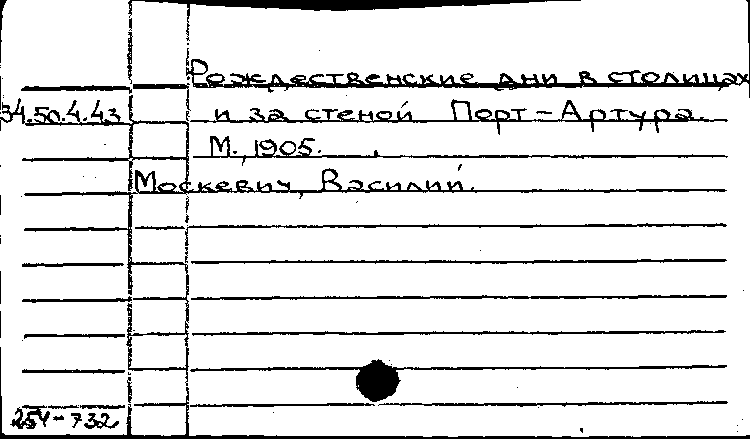 Рождественские дни в столицах
34.50.4.43 и за стеной Порт-Артура.
М., 1905.
Москевич, Василий.
254-732